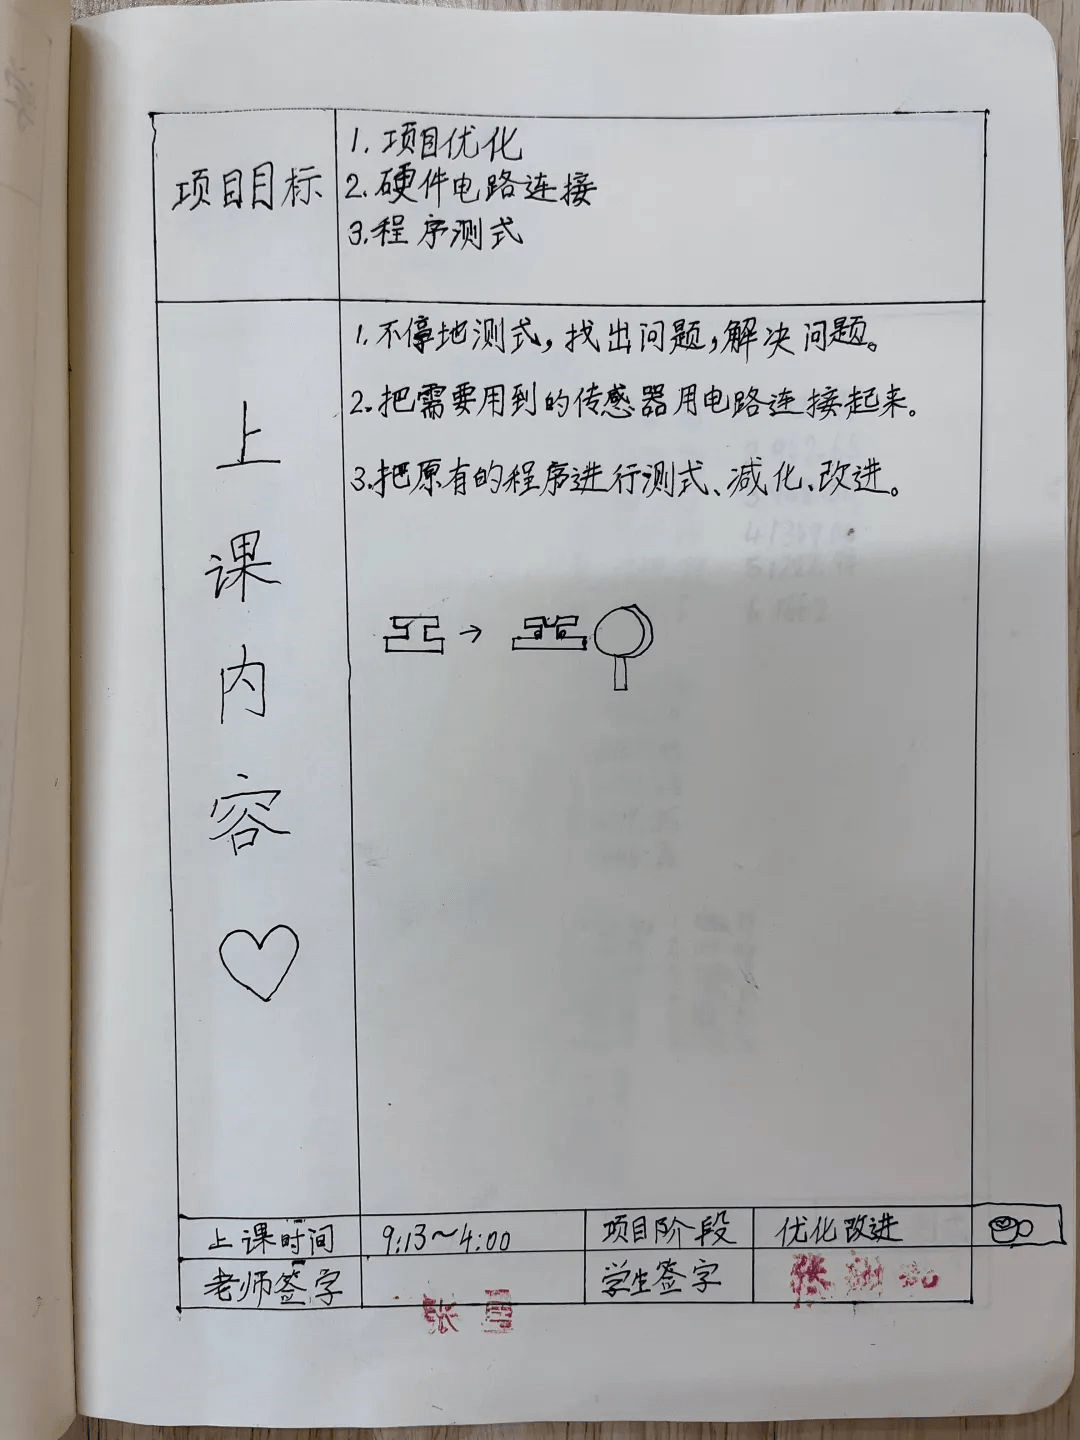 项目目标
1. 项目优化
2. 硬件电路连接
3. 程序测式
上课内容
1. 不停地测式,找出问题,解决问题。
2. 把需要用到的传感器用电路连接起来。
3. 把原有的程序进行测式、减化、改进。
上课时间 9:13~4:00 项目阶段 优化改进
老师签字 张 学生签字 张